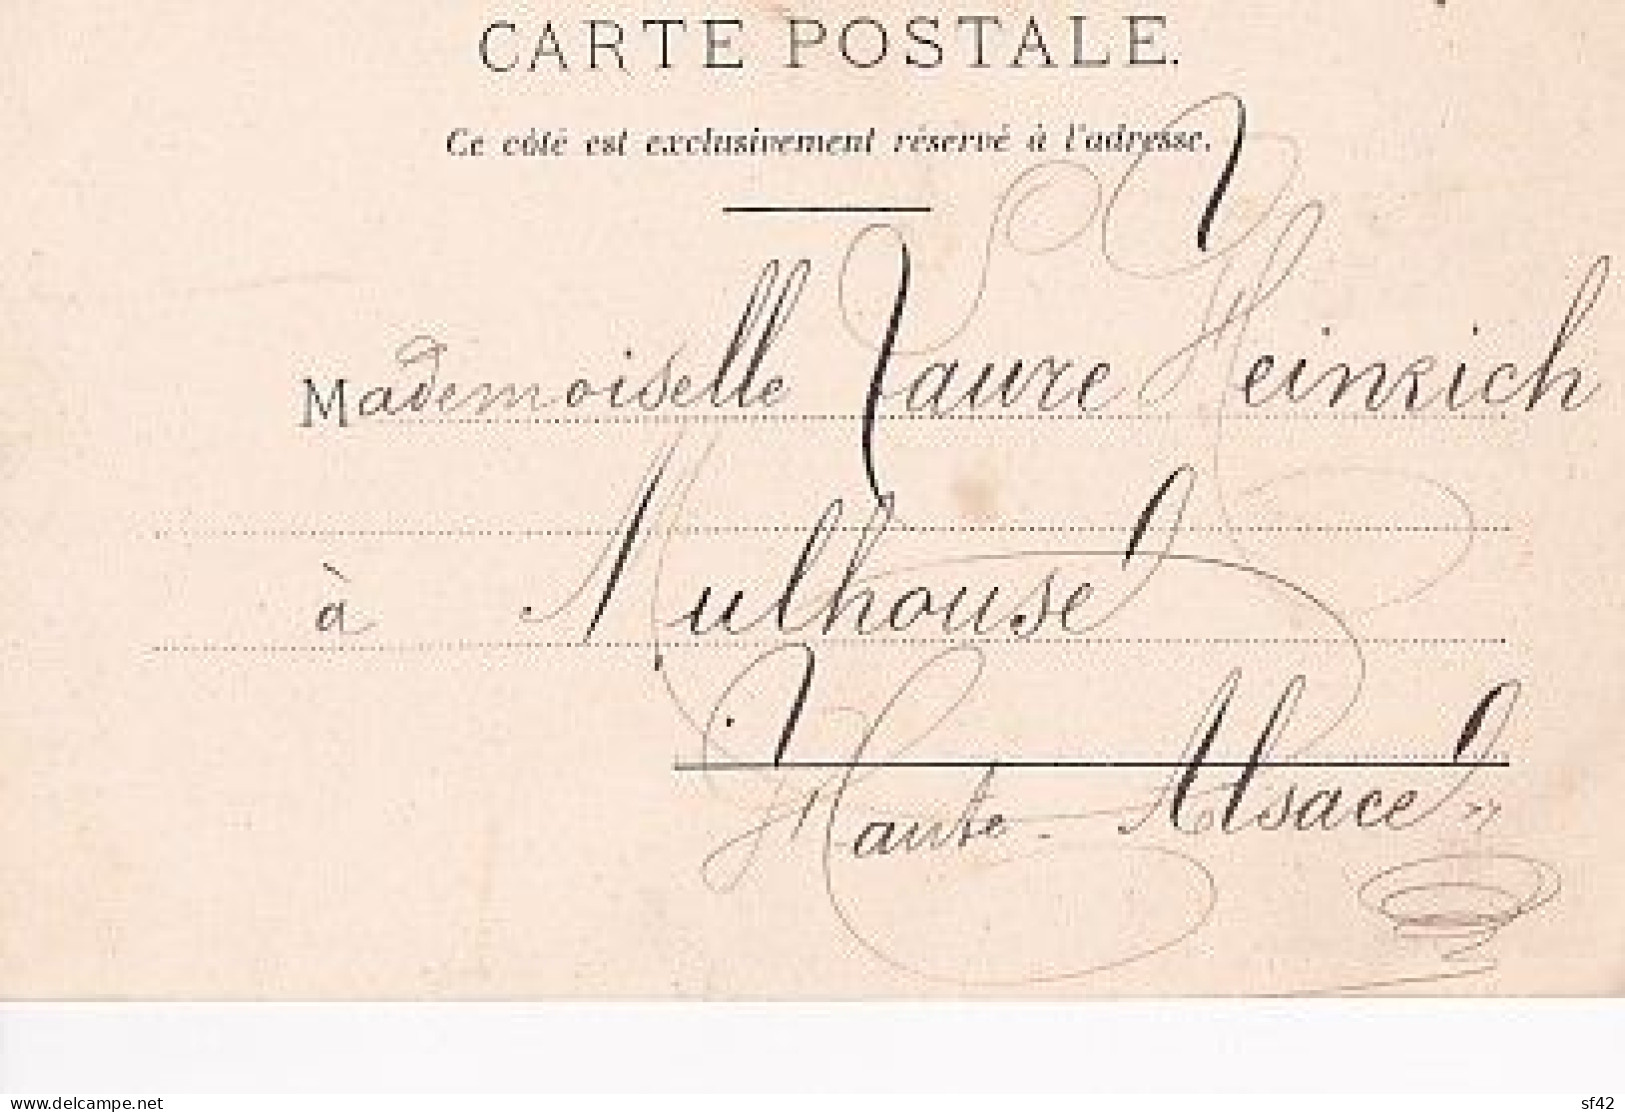 CARTE POSTALE.
Ce côté est exclusivement réservé à l'adresse.
Mademoiselle Laure Heinrich
à Mulhouse
Haute-Alsace
delcampe.net
sf42